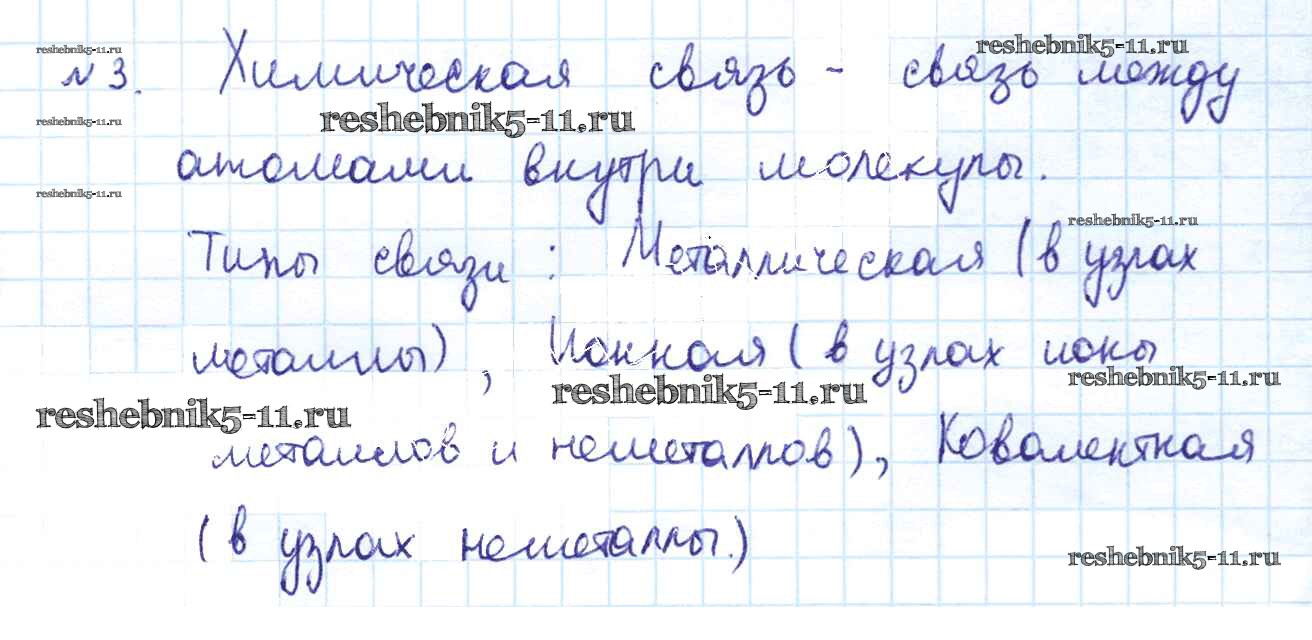 reshebnik5-11.ru
reshebnik5-11.ru
№ 3. Химическая связь - связь между
reshebnik5-11.ru
reshebnik5-11.ru
атомами внутри молекулы.
reshebnik5-11.ru
reshebnik5-11.ru
Типы связи : Металлическая (в узлах
металлы), Ионная (в узлах ионы
reshebnik5-11.ru
reshebnik5-11.ru
reshebnik5-11.ru
металлов и неметаллов), Ковалентная
(в узлах неметаллы.)
reshebnik5-11.ru